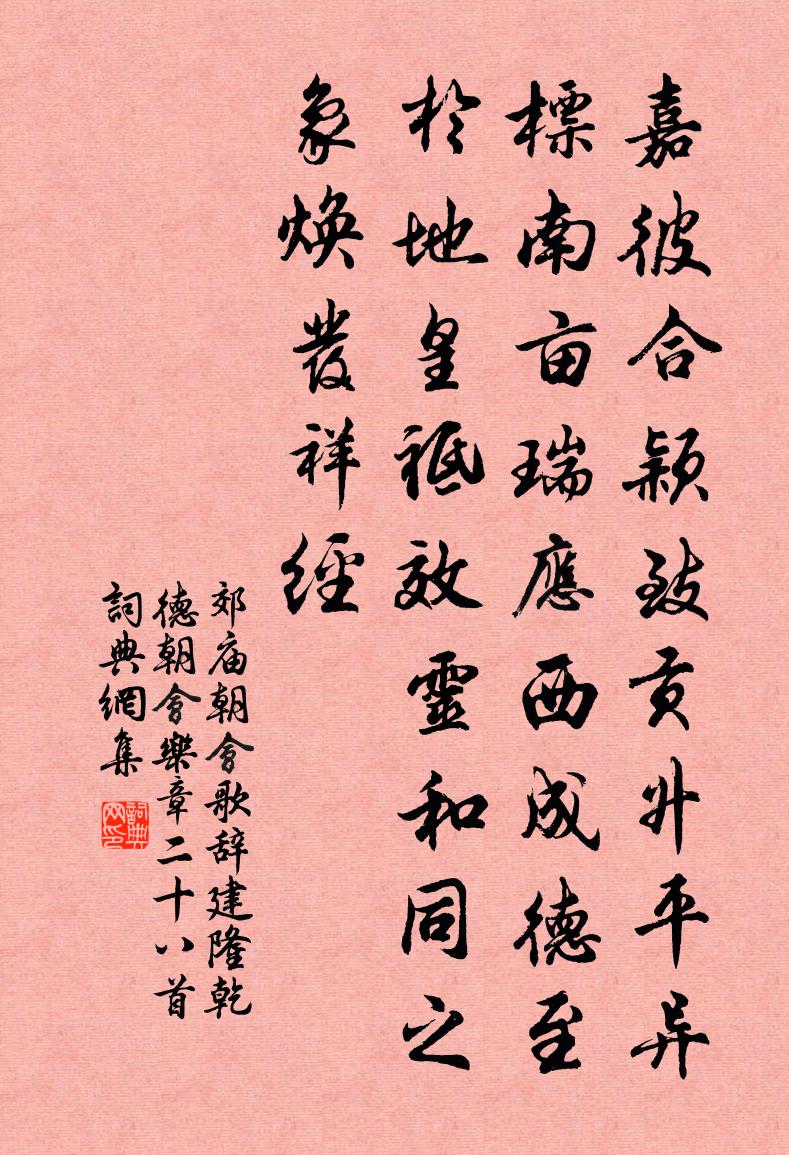 嘉彼合颖致贡升平异
標南亩瑞應西成德至
於地皇祗效靈和同之
象焕發祥經
郊庙朝會歌辞建隆乾
德朝會樂章二十八首
詞典網集
詞典
网印